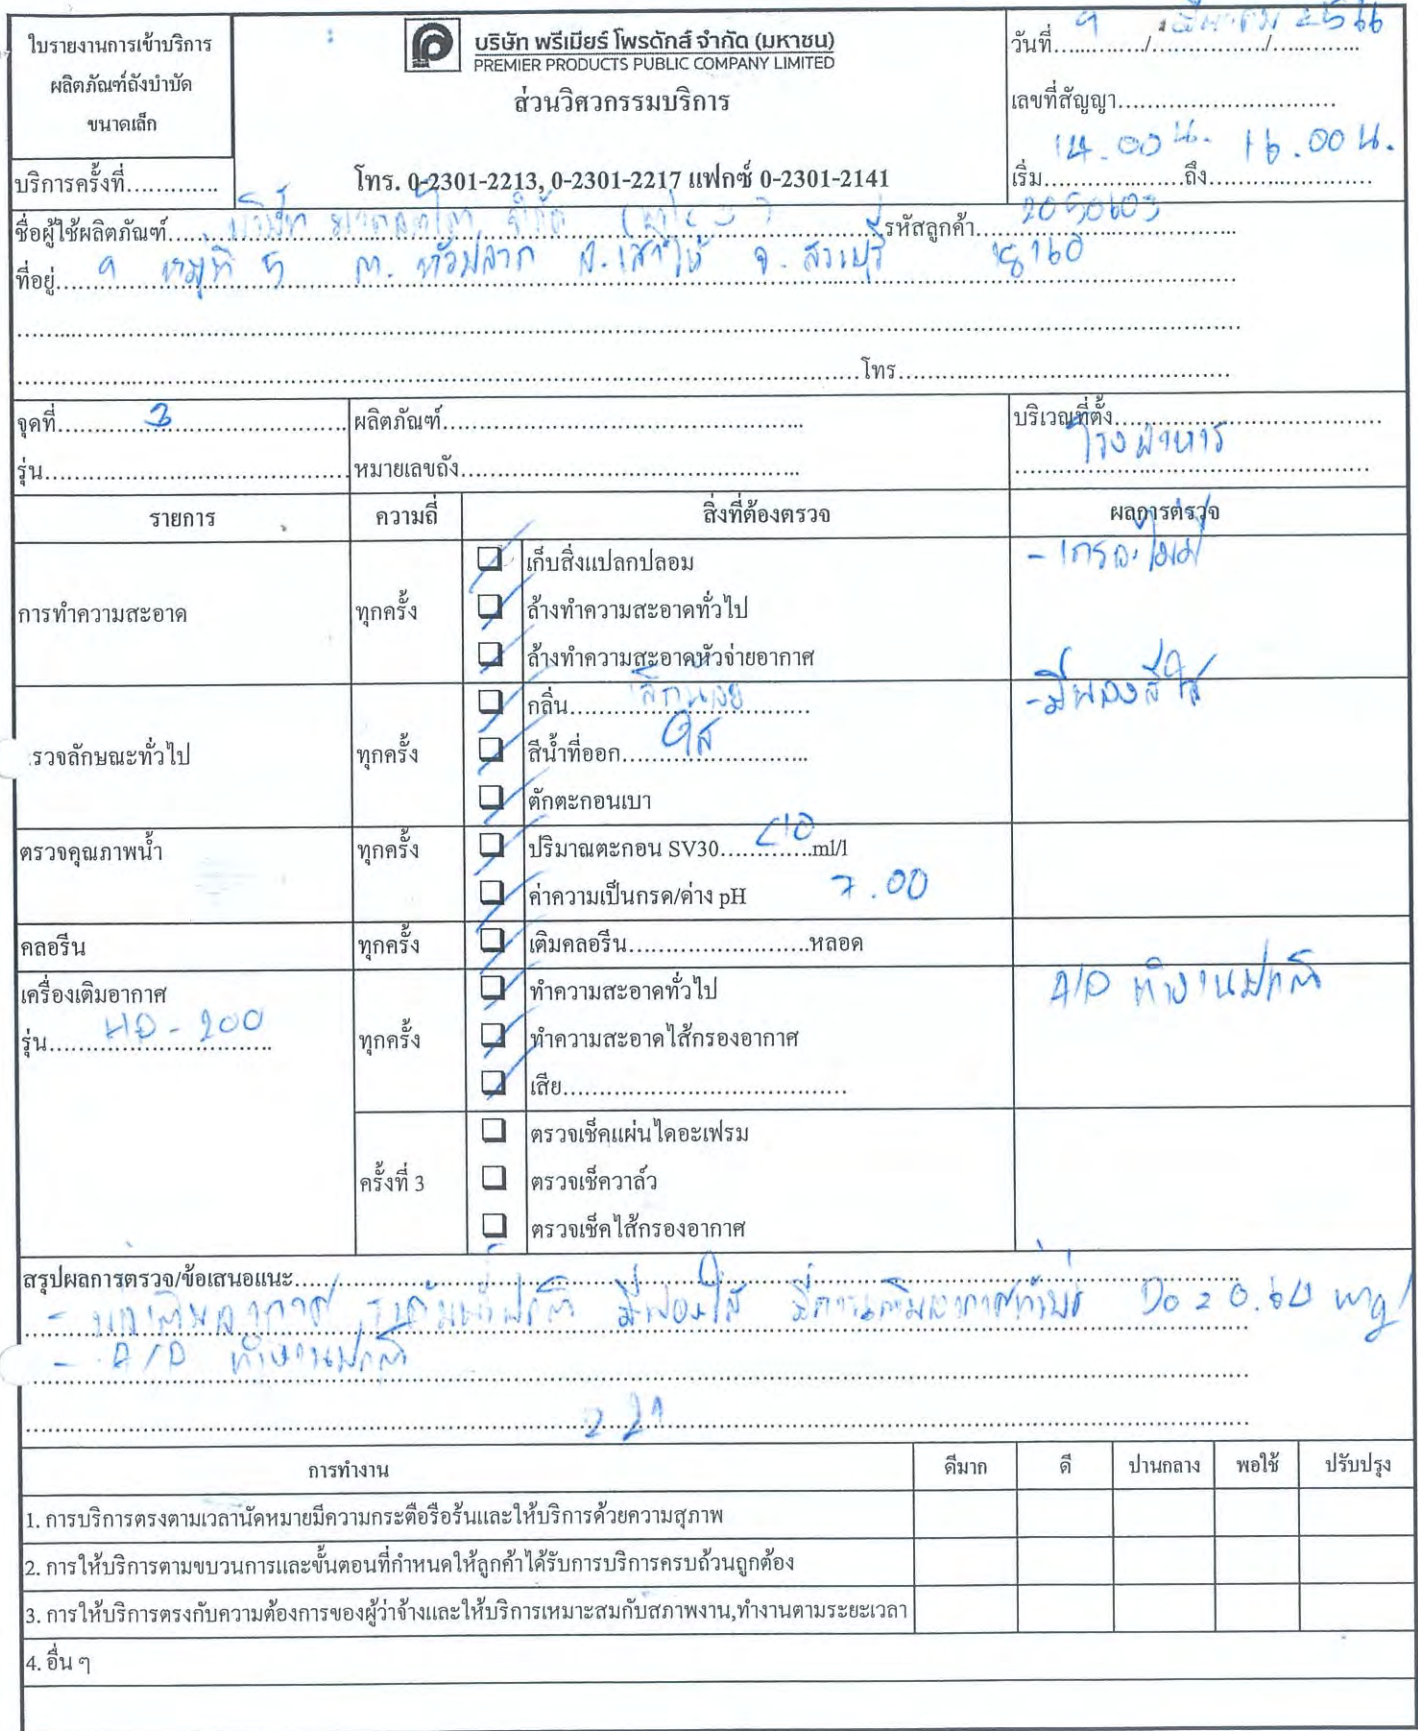 ใบรายงานการเข้าบริการ
ผลิตภัณฑ์ถังบำบัด
ขนาดเล็ก
บริการครั้งที่.............
บริษัท พรีเมียร์ โพรดักส์ จำกัด (มหาชน)
PREMIER PRODUCTS PUBLIC COMPANY LIMITED
ส่วนวิศวกรรมบริการ
โทร. 0-2301-2213, 0-2301-2217 แฟกซ์ 0-2301-2141
วันที่ 9 / มีนาคม 2566
เลขที่สัญญา..............................
เริ่ม 14.00 น. ถึง 16.00 น.
ชื่อผู้ใช้ผลิตภัณฑ์ บริษัท จำกัด รหัสลูกค้า
ที่อยู่ 9 หมู่ที่ 5 ต. หัวปลวก อ. เสาไห้ จ. สระบุรี 18160
โทร
จุดที่ 3 ผลิตภัณฑ์ บริเวณที่ตั้ง
รุ่น หมายเลขถัง โรงอาหาร
รายการ ความถี่ สิ่งที่ต้องตรวจ ผลการตรวจ
การทำความสะอาด ทุกครั้ง
เก็บสิ่งแปลกปลอม
ล้างทำความสะอาดทั่วไป
ล้างทำความสะอาดหัวจ่ายอากาศ
ตรวจลักษณะทั่วไป ทุกครั้ง
กลิ่น เล็กน้อย
- มีฟองสีใส
สีน้ำที่ออก ใส
ตักตะกอนเบา
ตรวจคุณภาพน้ำ ทุกครั้ง
ปริมาณตะกอน SV30 <10 ml/l
ค่าความเป็นกรด/ค่าง pH 7.00
คลอรีน ทุกครั้ง เติมคลอรีน........................หลอด
เครื่องเติมอากาศ
รุ่น HP-200 ทุกครั้ง
ทำความสะอาดทั่วไป
A/P ทำงานปกติ
ทำความสะอาดไส้กรองอากาศ
เสีย......................................
ครั้งที่ 3
ตรวจเช็คแผ่นไดอะเฟรม
ตรวจเช็ควาล์ว
ตรวจเช็คไส้กรองอากาศ
สรุปผลการตรวจ/ข้อเสนอแนะ
- บ่อเติมอากาศ ระดับน้ำปกติ มีฟองใส DO = 0.60 mg/
- A/P ทำงานปกติ
การทำงาน ดีมาก ดี ปานกลาง พอใช้ ปรับปรุง
1. การบริการตรงตามเวลานัดหมายมีความกระตือรือร้นและให้บริการด้วยความสุภาพ
2. การให้บริการตามขบวนการและขั้นตอนที่กำหนดให้ลูกค้าได้รับการบริการครบถ้วนถูกต้อง
3. การให้บริการตรงกับความต้องการของผู้ว่าจ้างและให้บริการเหมาะสมกับสภาพงาน,ทำงานตามระยะเวลา
4. อื่น ๆ